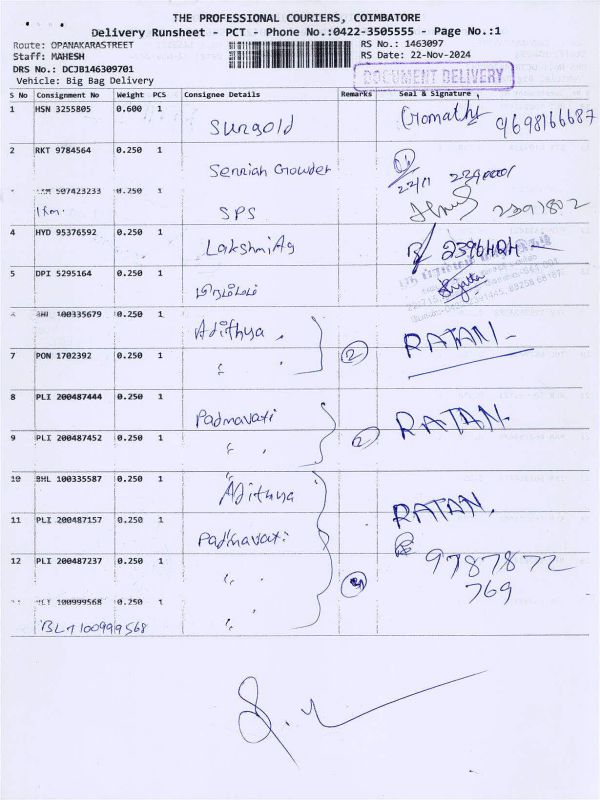 THE PROFESSIONAL COURIERS, COIMBATORE
Delivery Runsheet - PCT - Phone No.:0422-3505555 - Page No.:1
Route: OPANAKARASTREET
RS No.: 1463097
Staff: MAHESH
RS Date: 22-Nov-2024
DRS No.: DCJB146309701
DOCUMENT DELIVERY
Vehicle: Big Bag Delivery
S No Consignment No Weight PCS Consignee Details Remarks Seal & Signature
1 HSN 3255805 0.600 1 Sungold Gomathi 9698166687
2 RKT 9784564 0.250 1 Senniah Gowder
22/11
507423233 0.250 1 SPS
1 Km.
4 HYD 95376592 0.250 1 LakshmiAg
5 DPI 5295164 0.250 1
BHL 100335679 0.250 1 Adithya RATAN
7 PON 1702392 0.250 1 " 2
8 PLI 200487444 0.250 1 Padmavati RATAN.
9 PLI 200487452 0.250 1 " 2
10 BHL 100335587 0.250 1 Adithya
11 PLI 200487157 0.250 1 Padmavati RATAN.
12 PLI 200487237 0.250 1 " 4 9787872
769
100999568 0.250 1 "
BLT100999568